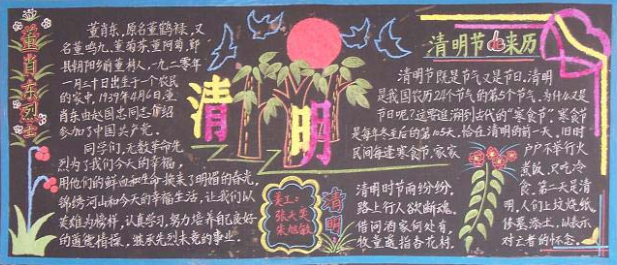 董肖东烈士
董肖东,原名董鹤禄,又
名董鸣九、董菊芬、董阿菊,鄞
县朝阳乡前董村人,一九二零年
一月三十日出生于一个农民
的家中,1939年4月6日,董
肖东由赵国忠同志介绍
参加了中国共产党。
同学们,无数革命先
烈为了我们今天的幸福,
用他们的鲜血和生命换来了明媚的春光,
锦绣河山和今天的幸福生活,让我们以
英雄为榜样,认真学习,努力培养自己良好
的道德情操,继承先烈未竟的事业。
清明
美工:
张天英
朱旭敏
清明
清明时节雨纷纷,
路上行人欲断魂。
借问酒家何处有,
牧童遥指杏花村。
清明节的来历
清明节既是节气又是节日,清明
是我国农历24个节气的第5个节气,为什么又是
节日呢?这要追溯到古代的“寒食节”寒食节
是每年冬至后的第105天,恰在清明的前一天,旧时
民间每逢寒食节,家家
户户不举行火
煮饭,只吃冷
食。第二天是清
明,人们上坟烧纸
修墓添土,以表示
对亡者的怀念。